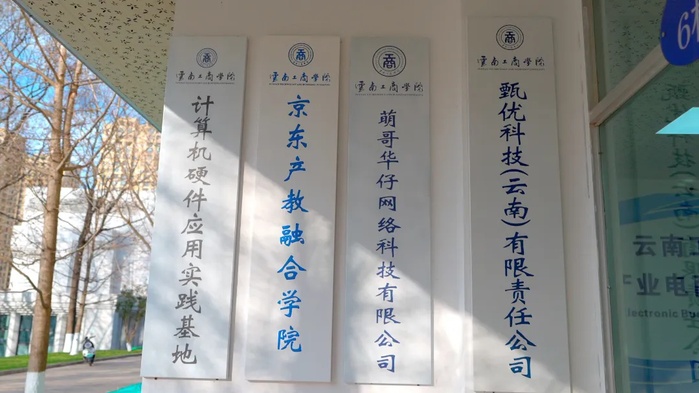 云南工商学院
计算机硬件应用实践基地
云南工商学院
京东产教融合学院
云南工商学院
萌哥华仔网络科技有限公司
云南工商学院
甄优科技(云南)有限责任公司
6
云南工
产业电
lectronic Bu